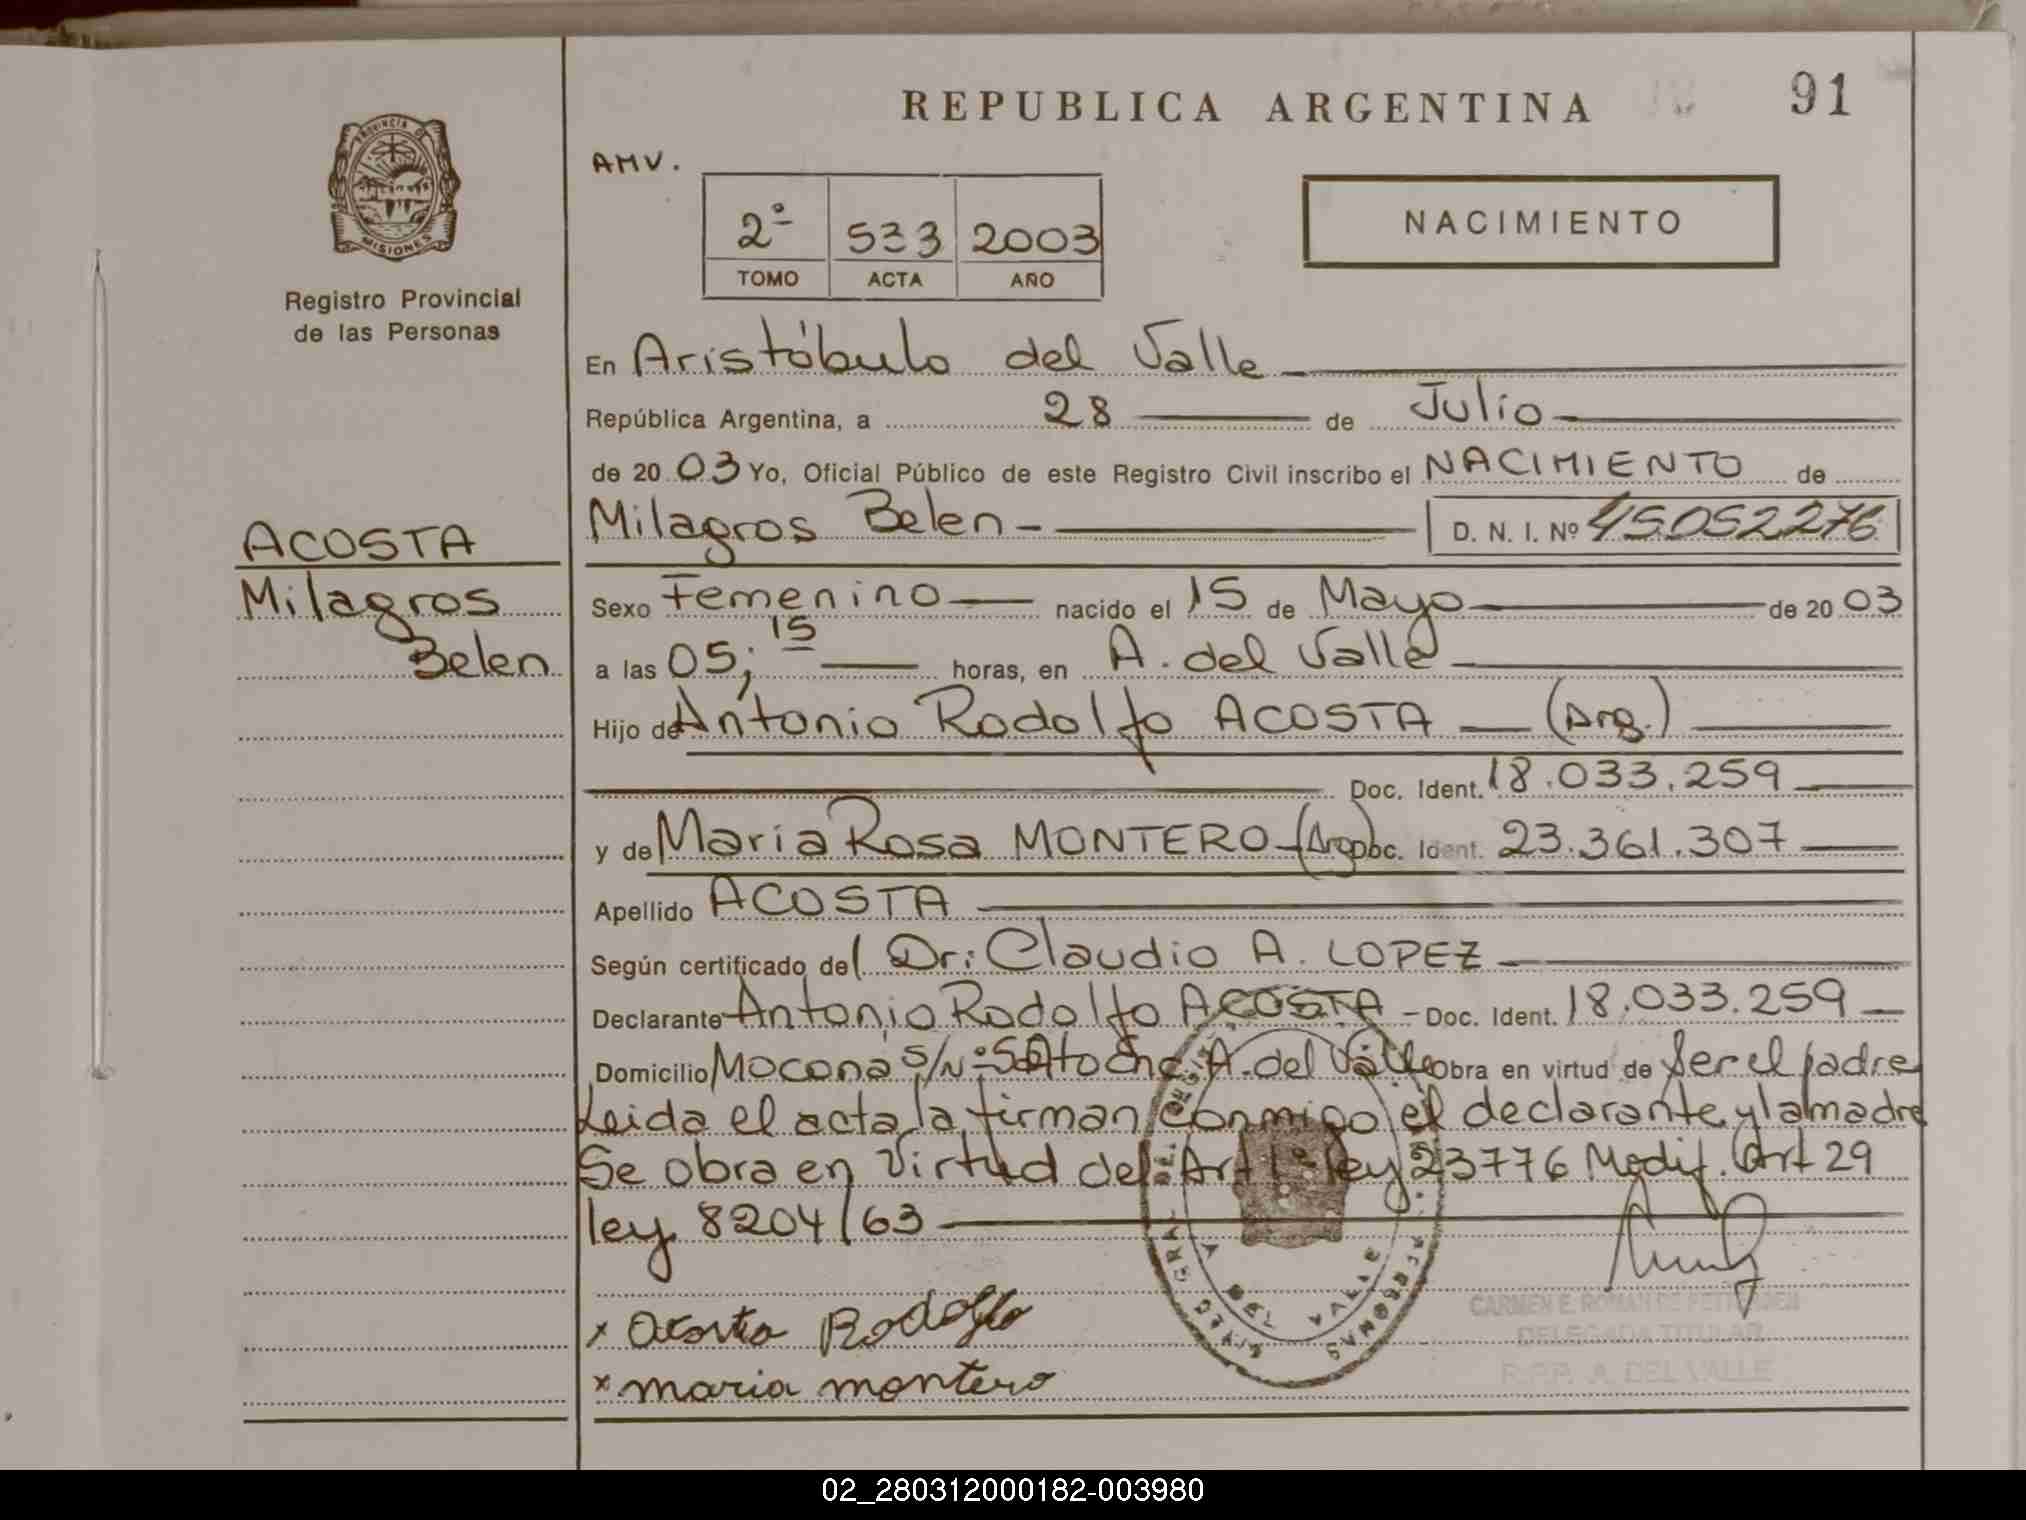 REPUBLICA ARGENTINA
91
PROVINCIA DE
MISIONES
Registro Provincial
de las Personas
AMV.
2º 533 2003
TOMO ACTA AÑO
NACIMIENTO
En Aristóbulo del Valle
República Argentina, a 28 de Julio
de 20 03 Yo, Oficial Público de este Registro Civil inscribo el NACIMIENTO de
Milagros Belen - D. N. I. Nº 45052276
ACOSTA
Milagros
Belen
Sexo Femenino nacido el 15 de Mayo de 20 03
a las 05; 15 horas, en A. del Valle
Hijo de Antonio Rodolfo ACOSTA (Arg.)
Doc. Ident. 18.033.259
y de Maria Rosa MONTERO (Arg) Doc. Ident. 23.361.307
Apellido ACOSTA
Según certificado del Dr: Claudio A. LOPEZ
Declarante Antonio Rodolfo ACOSTA - Doc. Ident. 18.033.259
Domicilio Mocona s/Nº A. del Valle Obra en virtud de Ser el padre
Leida el acta la firman conmigo el declarante y la madre
Se obra en virtud del Art 1º ley 23776 Modif. Art 29
ley 8204/63
x Acosta Rodolfo
x maria montero
A DEL VALLE
DELEGADA TITULAR
R.P.P. A. DEL VALLE
02_280312000182-003980